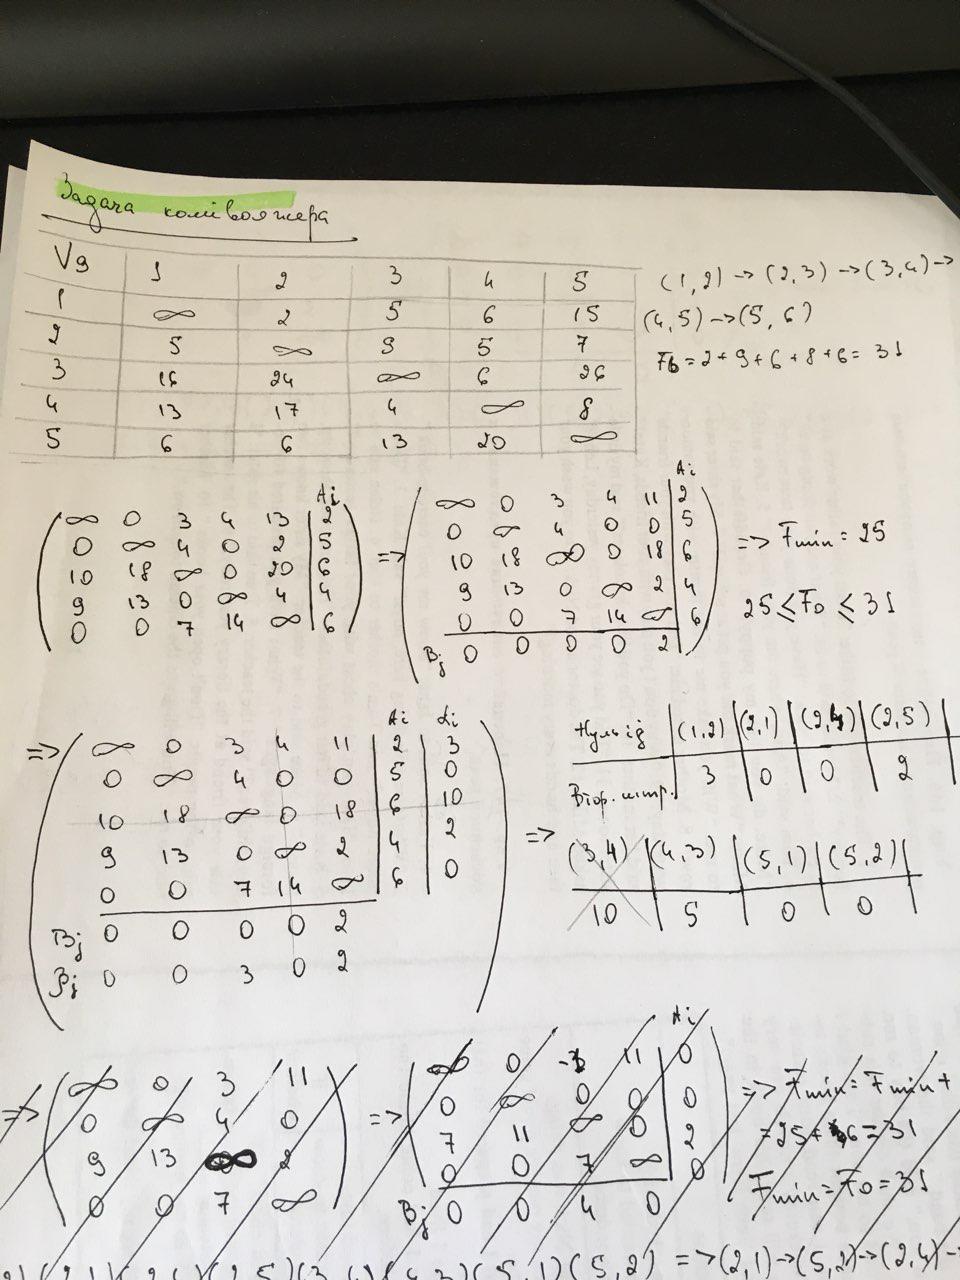 Задача комівояжера
V9 1 2 3 4 5
1 ∞ 2 5 6 15
2 5 ∞ 9 5 7
3 16 24 ∞ 6 26
4 13 17 4 ∞ 8
5 6 6 13 20 ∞
(1,2) → (2,3) → (3,4) →
(4,5) → (5,6)
F6 = 2+9+6+8+6 = 31
Ai
∞ 0 3 4 13 2
0 ∞ 4 0 2 5
10 18 ∞ 0 20 6
9 13 0 ∞ 4 4
0 0 7 14 ∞ 6
=>
Ai
∞ 0 3 4 11 2
0 ∞ 4 0 0 5
10 18 ∞ 0 18 6
9 13 0 ∞ 2 4
0 0 7 14 ∞ 6
Bj 0 0 0 0 2
=> Fmin = 25
25 ≤ F0 ≤ 31
=>
Ai αi
∞ 0 3 4 11 2 3
0 ∞ 4 0 0 5 0
10 18 ∞ 0 18 6 10
9 13 0 ∞ 2 4 2
0 0 7 14 ∞ 6 0
Bj 0 0 0 0 2
βj 0 0 3 0 2
=>
(1,2) (2,1) (2,4) (2,5)
3 0 0 2
(3,4) (4,3) (5,1) (5,2)
10 5 0 0
=>
∞ 0 3 11
0 ∞ 4 0
9 13 ∞ 2
0 0 7 ∞
=>
Ai
∞ 0 11 0
0 ∞ 0 0 0
7 11 ∞ 0 2
0 0 7 ∞ 0
Bj 0 0 4 0
=> Fmin = Fmin +
= 25 + 6 = 31
Fmin = F0 = 31
(5,1) (5,2) => (2,1) → (5,2) → (2,4) →